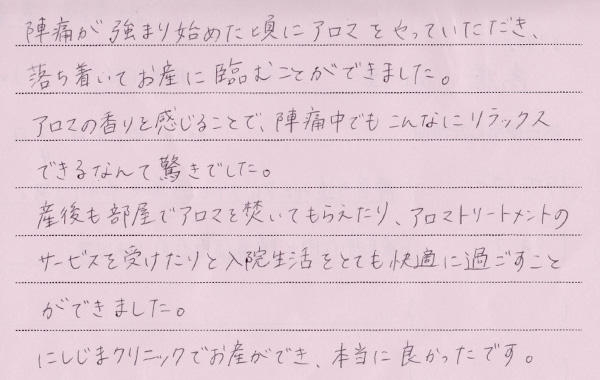 陣痛が強まり始めた頃にアロマをやっていただき、
落ち着いてお産に臨むことができました。
アロマの香りを感じることで、陣痛中でもこんなにリラックス
できるなんて驚きでした。
産後も部屋でアロマを焚いてもらえたり、アロマトリートメントの
サービスを受けたりと入院生活をとても快適に過ごすこと
ができました。
にしじまクリニックでお産ができ、本当に良かったです。